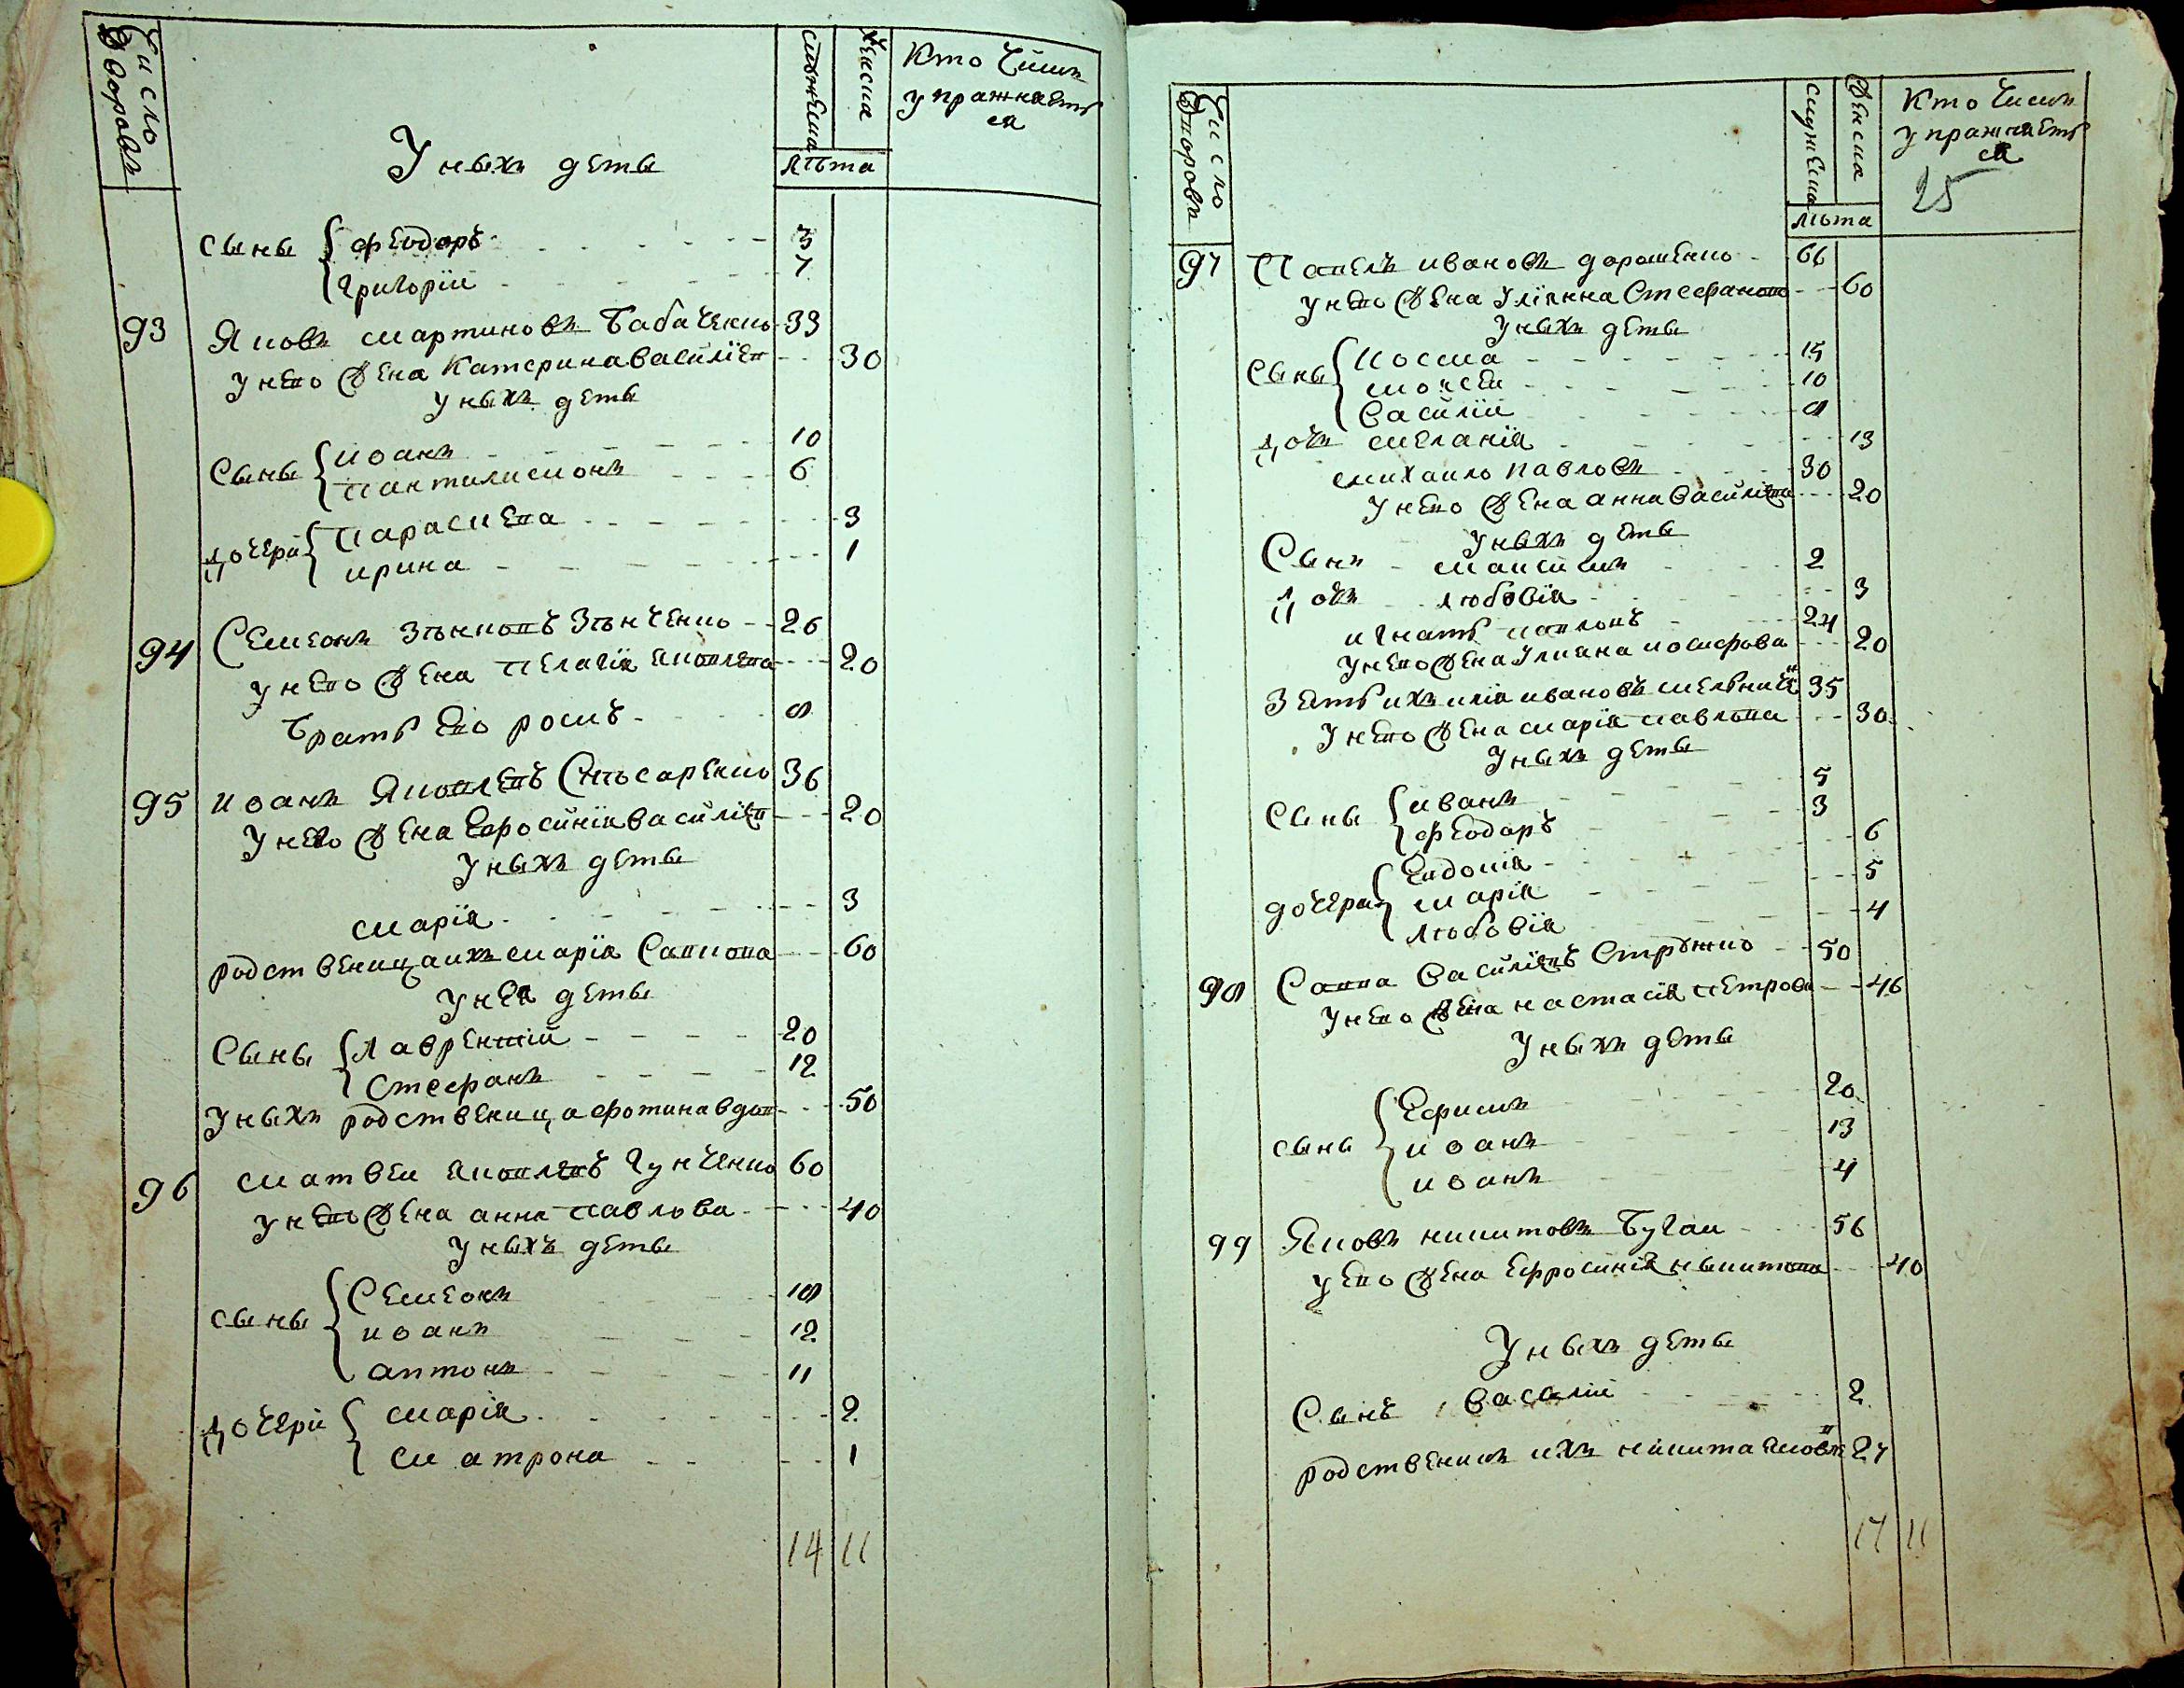 Число дворовъ
мужеска
женска
лѣта
Кто чимъ
упражняеть
ся
У ныхъ деты
сыны Феодоръ 3
Григорій 1
93 Яковъ Мартиновъ Бабаченко 33
у нево жена Катерина Василіев 30
у ныхъ деты
сыны Иоанъ 10
Пантилимонъ 6
дочери Параскева 3
Ирина 1
94 Семеонъ Зѣнковъ Зѣнченко 26
у нево жена Пелагія Яковлева 20
братъ ево Романъ 8
95 Иоанъ Яковлевъ Слюсаренко 36
У нево жена Ефросинія Василіев 20
у ныхъ деты
Марія 3
родственица ихъ Марія Савкова 60
у нея деты
сыны Лаврентій 20
Стефанъ 12
У ныхъ родственица Фотина вдов 50
96 Матвеи Яковлевъ Гунченко 60
у нево жена Анна Павлова 40
у ныхъ деты
сыны Семеонъ 18
Иоанъ 12
Антонъ 11
дочери Марія 2
Матрона 1
14 11
Число дворовъ
мужеска
женска
лѣта
Кто чимъ
упражняеть
ся
25
97 Павелъ Ивановъ Дорошенко 66
у нево жена Уліянна Стефанова 60
у ныхъ деты
сыны Косма 15
Моисеи 10
Василіи 8
дочь Меланія 13
Михаило Павловъ 30
у нево жена Анна Василіева 20
у ныхъ деты
Сынъ Максимъ 2
дочь Любовія 3
Игнатъ Павловъ 24
у нево жена Улиана Иосифова 20
Зеть ихъ Илія Ивановъ Мельникъ 35
у нево жена Марія Павлова 30
у ныхъ деты
сыны Иванъ 5
Феодоръ 3
дочери Евдокія 6
Марія 5
Любовія 4
98 Савва Василіевъ Стрѣжко 50
у нево жена Настасія Петрова 46
у ныхъ деты
сыны Ефимъ 20
Иоанъ 13
Иоанъ 4
99 Яковъ Никитовъ Бугаи 56
у ево жена Ефросинія Никитова 40
у ныхъ деты
Сынъ Василіи 2
родственикъ ихъ Никита Яковлевъ 27
17 11